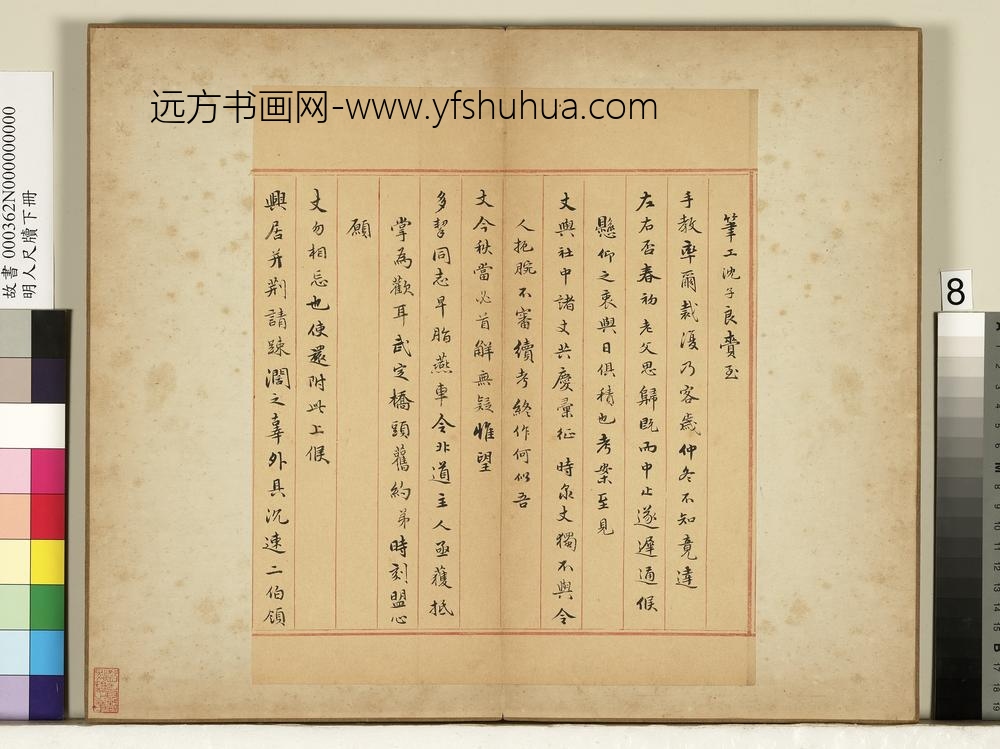 远方书画网-www.yfshuhua.com
筆工沈子良賫至
手教率爾裁復乃客歲仲冬不知竟達
左右否春初老父思歸既而中止遂遲通候
懸仰之衷與日俱積也考案至見
丈與社中諸丈共慶彙征時泉丈獨不與令
人扼腕不審續考終作何似吾
丈今秋當必首解無疑惟望
多挈同志早脂燕車令北道主人亟獲抵
掌為歡耳武定橋頭舊約弟時刻盟心
願
丈勿相忘也使還附此上候
興居并荊請踈濶之辜外具沉速二伯頒
故書 000362N000000000
明人尺牘下冊
8